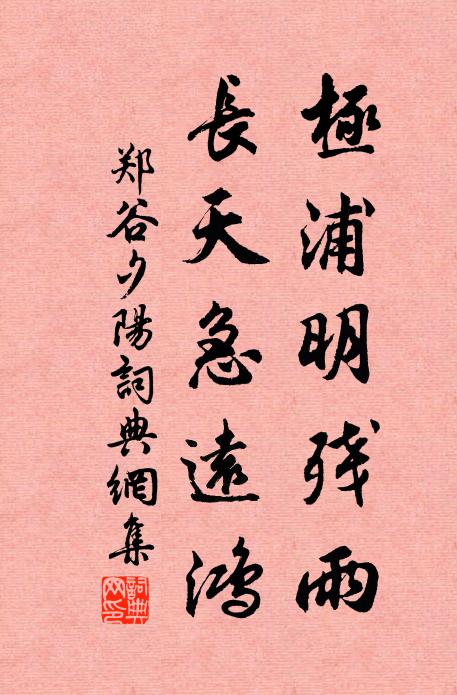 極浦明残雨
長天急遠鴻
郑谷夕陽詞典網集
詞典网印